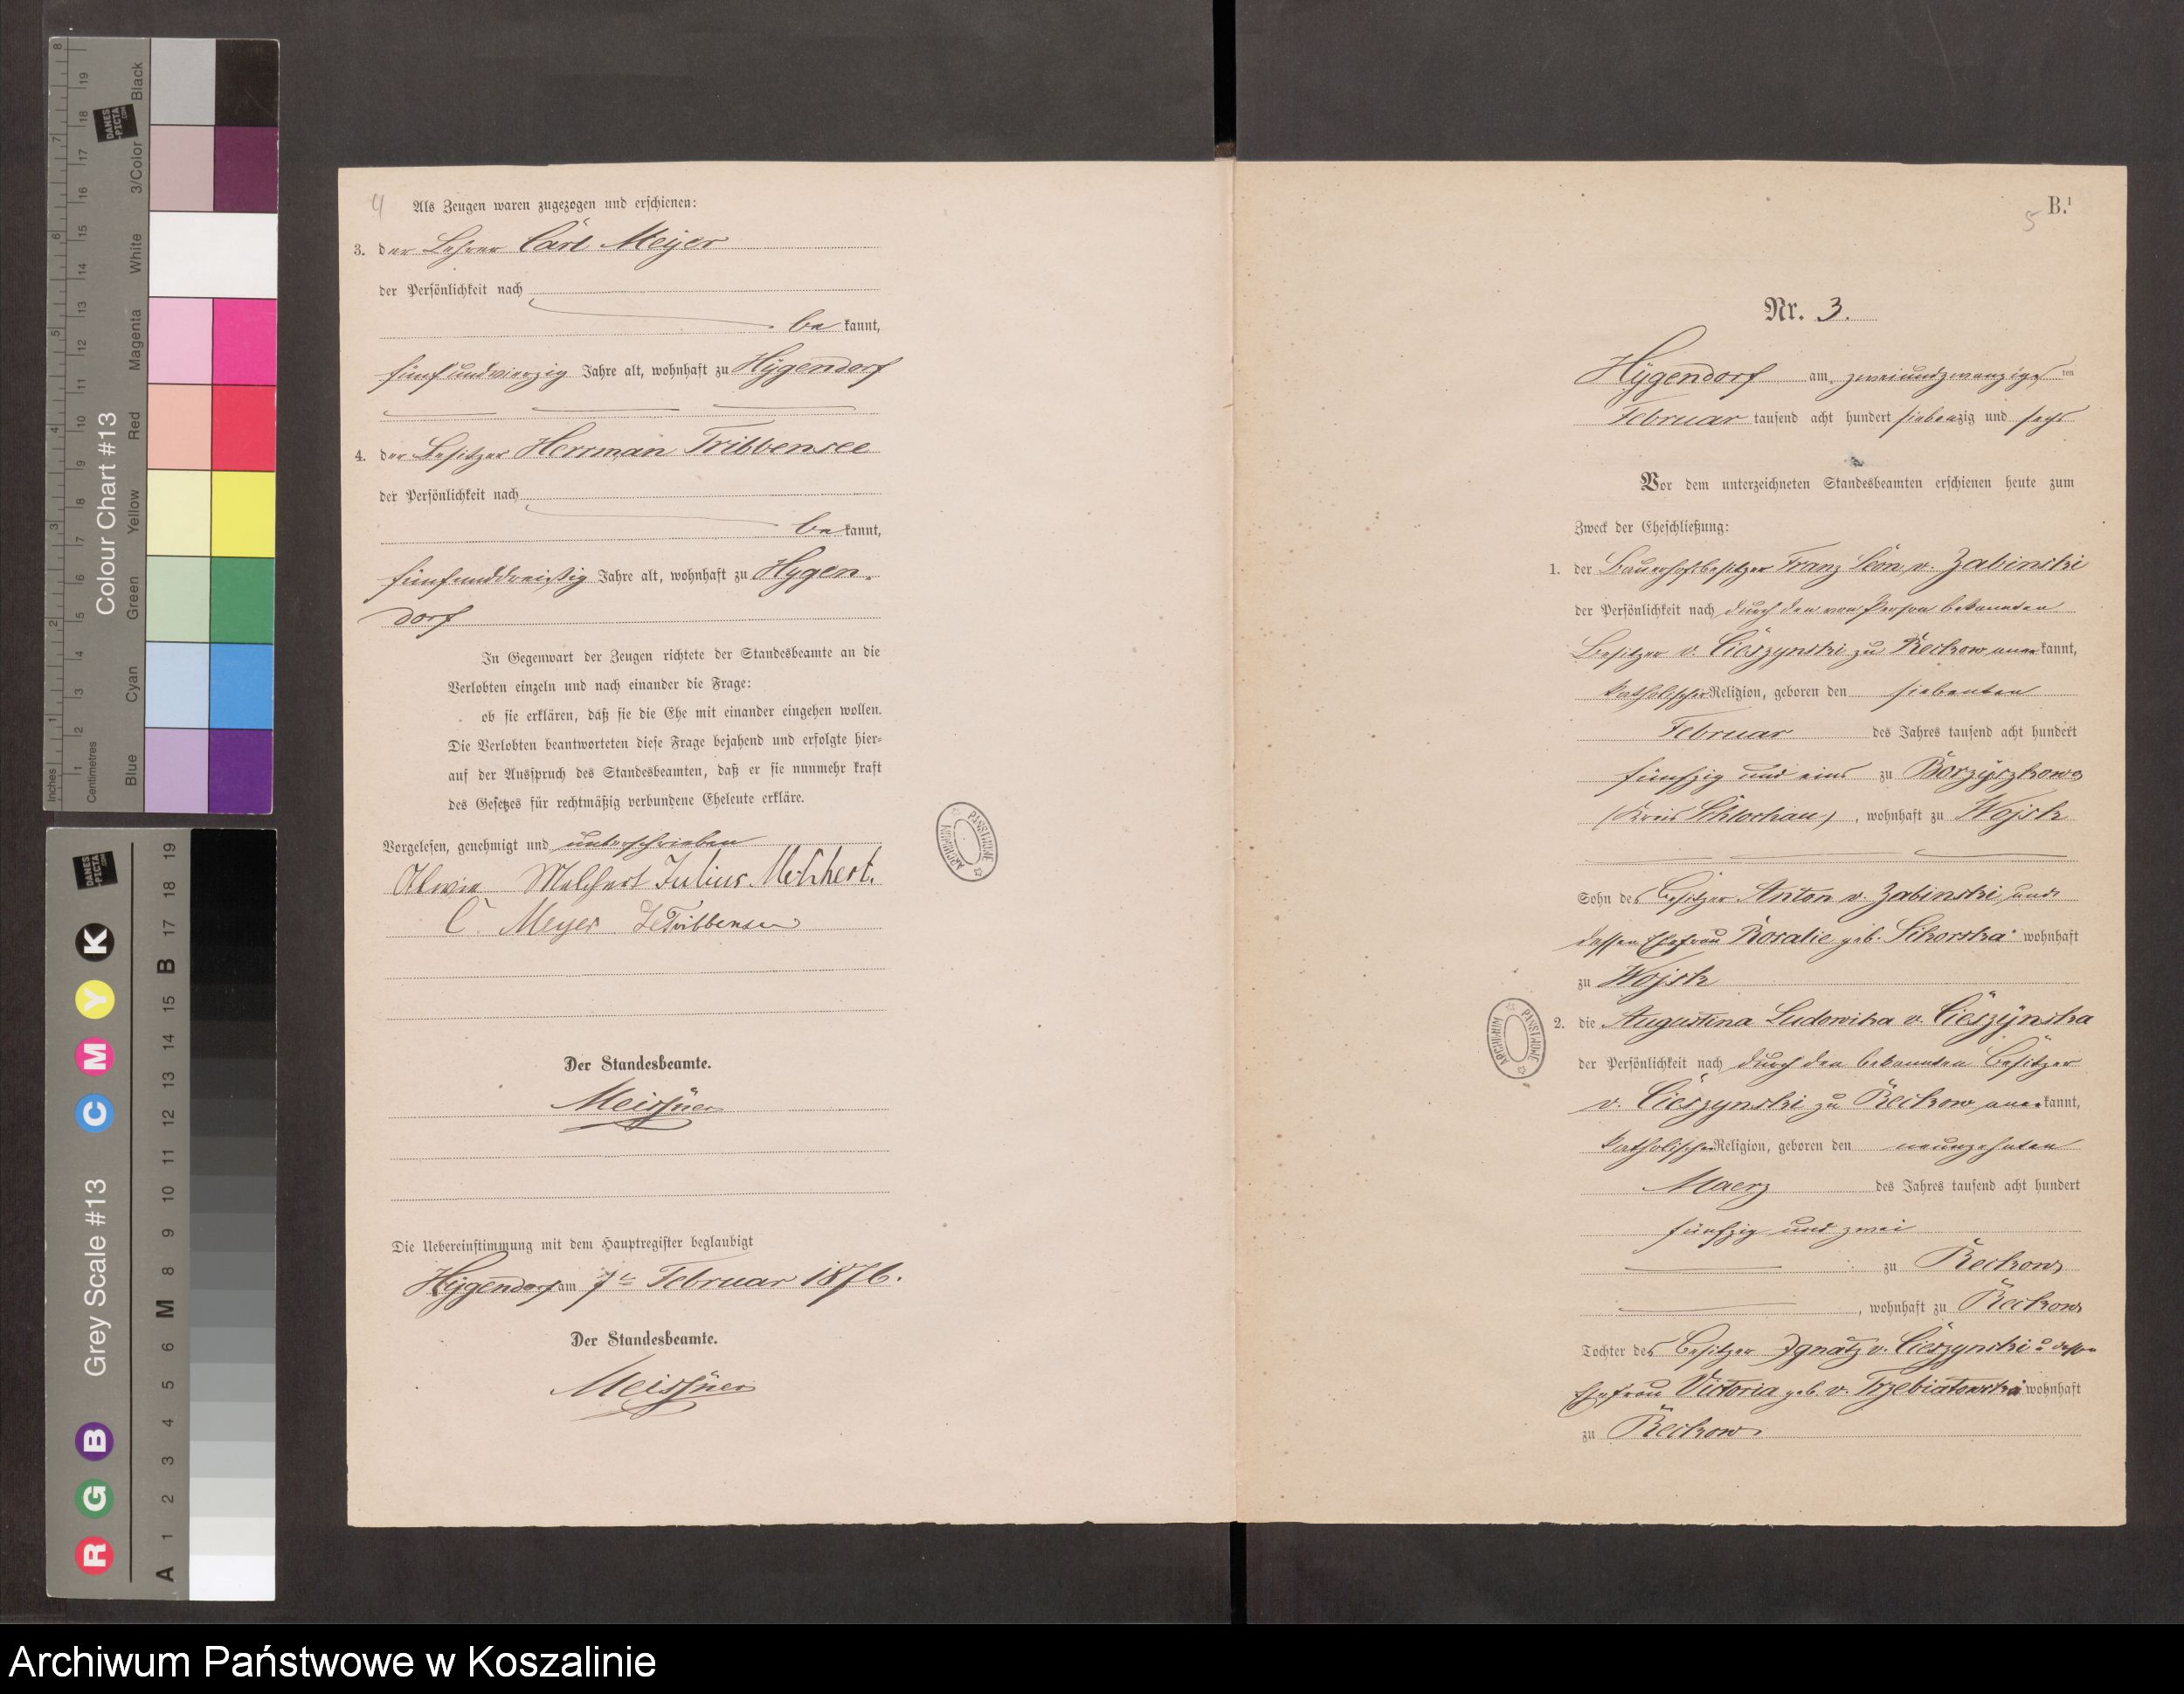 Inches 1 2 3 4 5 6 7 8
Centimetres 1 2 3 4 5 6 7 8 9 10 11 12 13 14 15 16 17 18 19
Colour Chart #13
DANES-PICTA.COM
Blue Cyan Green Yellow Red Magenta White 3/Color Black
Grey Scale #13
R G B C M Y K
A 1 2 3 4 5 6 M 8 9 10 11 12 13 14 15 B 17 18 19
DANES-PICTA.COM
4
Als Zeugen waren zugezogen und erschienen:
3. der Lehrer Carl Meyer
der Persönlichkeit nach
be kannt,
fünfundvierzig Jahre alt, wohnhaft zu Hygendorf
4. der Besitzer Herrman Tribbensee
der Persönlichkeit nach
be kannt,
fünfunddreißig Jahre alt, wohnhaft zu Hygen-
dorf
In Gegenwart der Zeugen richtete der Standesbeamte an die
Verlobten einzeln und nach einander die Frage:
ob sie erklären, daß sie die Ehe mit einander eingehen wollen.
Die Verlobten beantworteten diese Frage bejahend und erfolgte hier=
auf der Ausspruch des Standesbeamten, daß er sie nunmehr kraft
des Gesetzes für rechtmäßig verbundene Eheleute erkläre.
Vorgelesen, genehmigt und unterschrieben
Melchert Julius Melchert.
C. Meyer Tribbensee
Der Standesbeamte.
Meissner
Die Uebereinstimmung mit dem Hauptregister beglaubigt
Hygendorf am 7t Februar 1876.
Der Standesbeamte.
Meissner
ARCHIWUM PAŃSTWOWE
B.¹
5
Nr. 3.
Hygendorf am zweiundzwanzigsten
Februar tausend acht hundert siebenzig und sechs
Vor dem unterzeichneten Standesbeamten erschienen heute zum
Zweck der Eheschließung:
1. der Bauerhofsbesitzer Franz Leon v. Zabinski
der Persönlichkeit nach durch den von Person bekannten
Besitzer v. Cieszynski zu Reckow aner kannt,
katholischer Religion, geboren den siebenten
Februar des Jahres tausend acht hundert
fünfzig und eins zu Borzyszkowo
(Kreis Schlochau), wohnhaft zu Wojsk
Sohn des Besitzer Anton v. Zabinski und
dessen Ehefrau Rosalie geb. Sikorska wohnhaft
zu Wojsk
2. die Augustina Ludowika v. Cieszynska
der Persönlichkeit nach durch den bekannten Besitzer
v. Cieszynski zu Reckow aner kannt,
katholischer Religion, geboren den neunzehnten
Maerz des Jahres tausend acht hundert
fünfzig und zwei
zu Reckow
, wohnhaft zu Reckow
Tochter des Besitzer Ignatz v. Cieszynski u. dessen
Ehefrau Victoria geb. v. Trzebiatowska wohnhaft
zu Reckow
ARCHIWUM PAŃSTWOWE
Archiwum Państwowe w Koszalinie